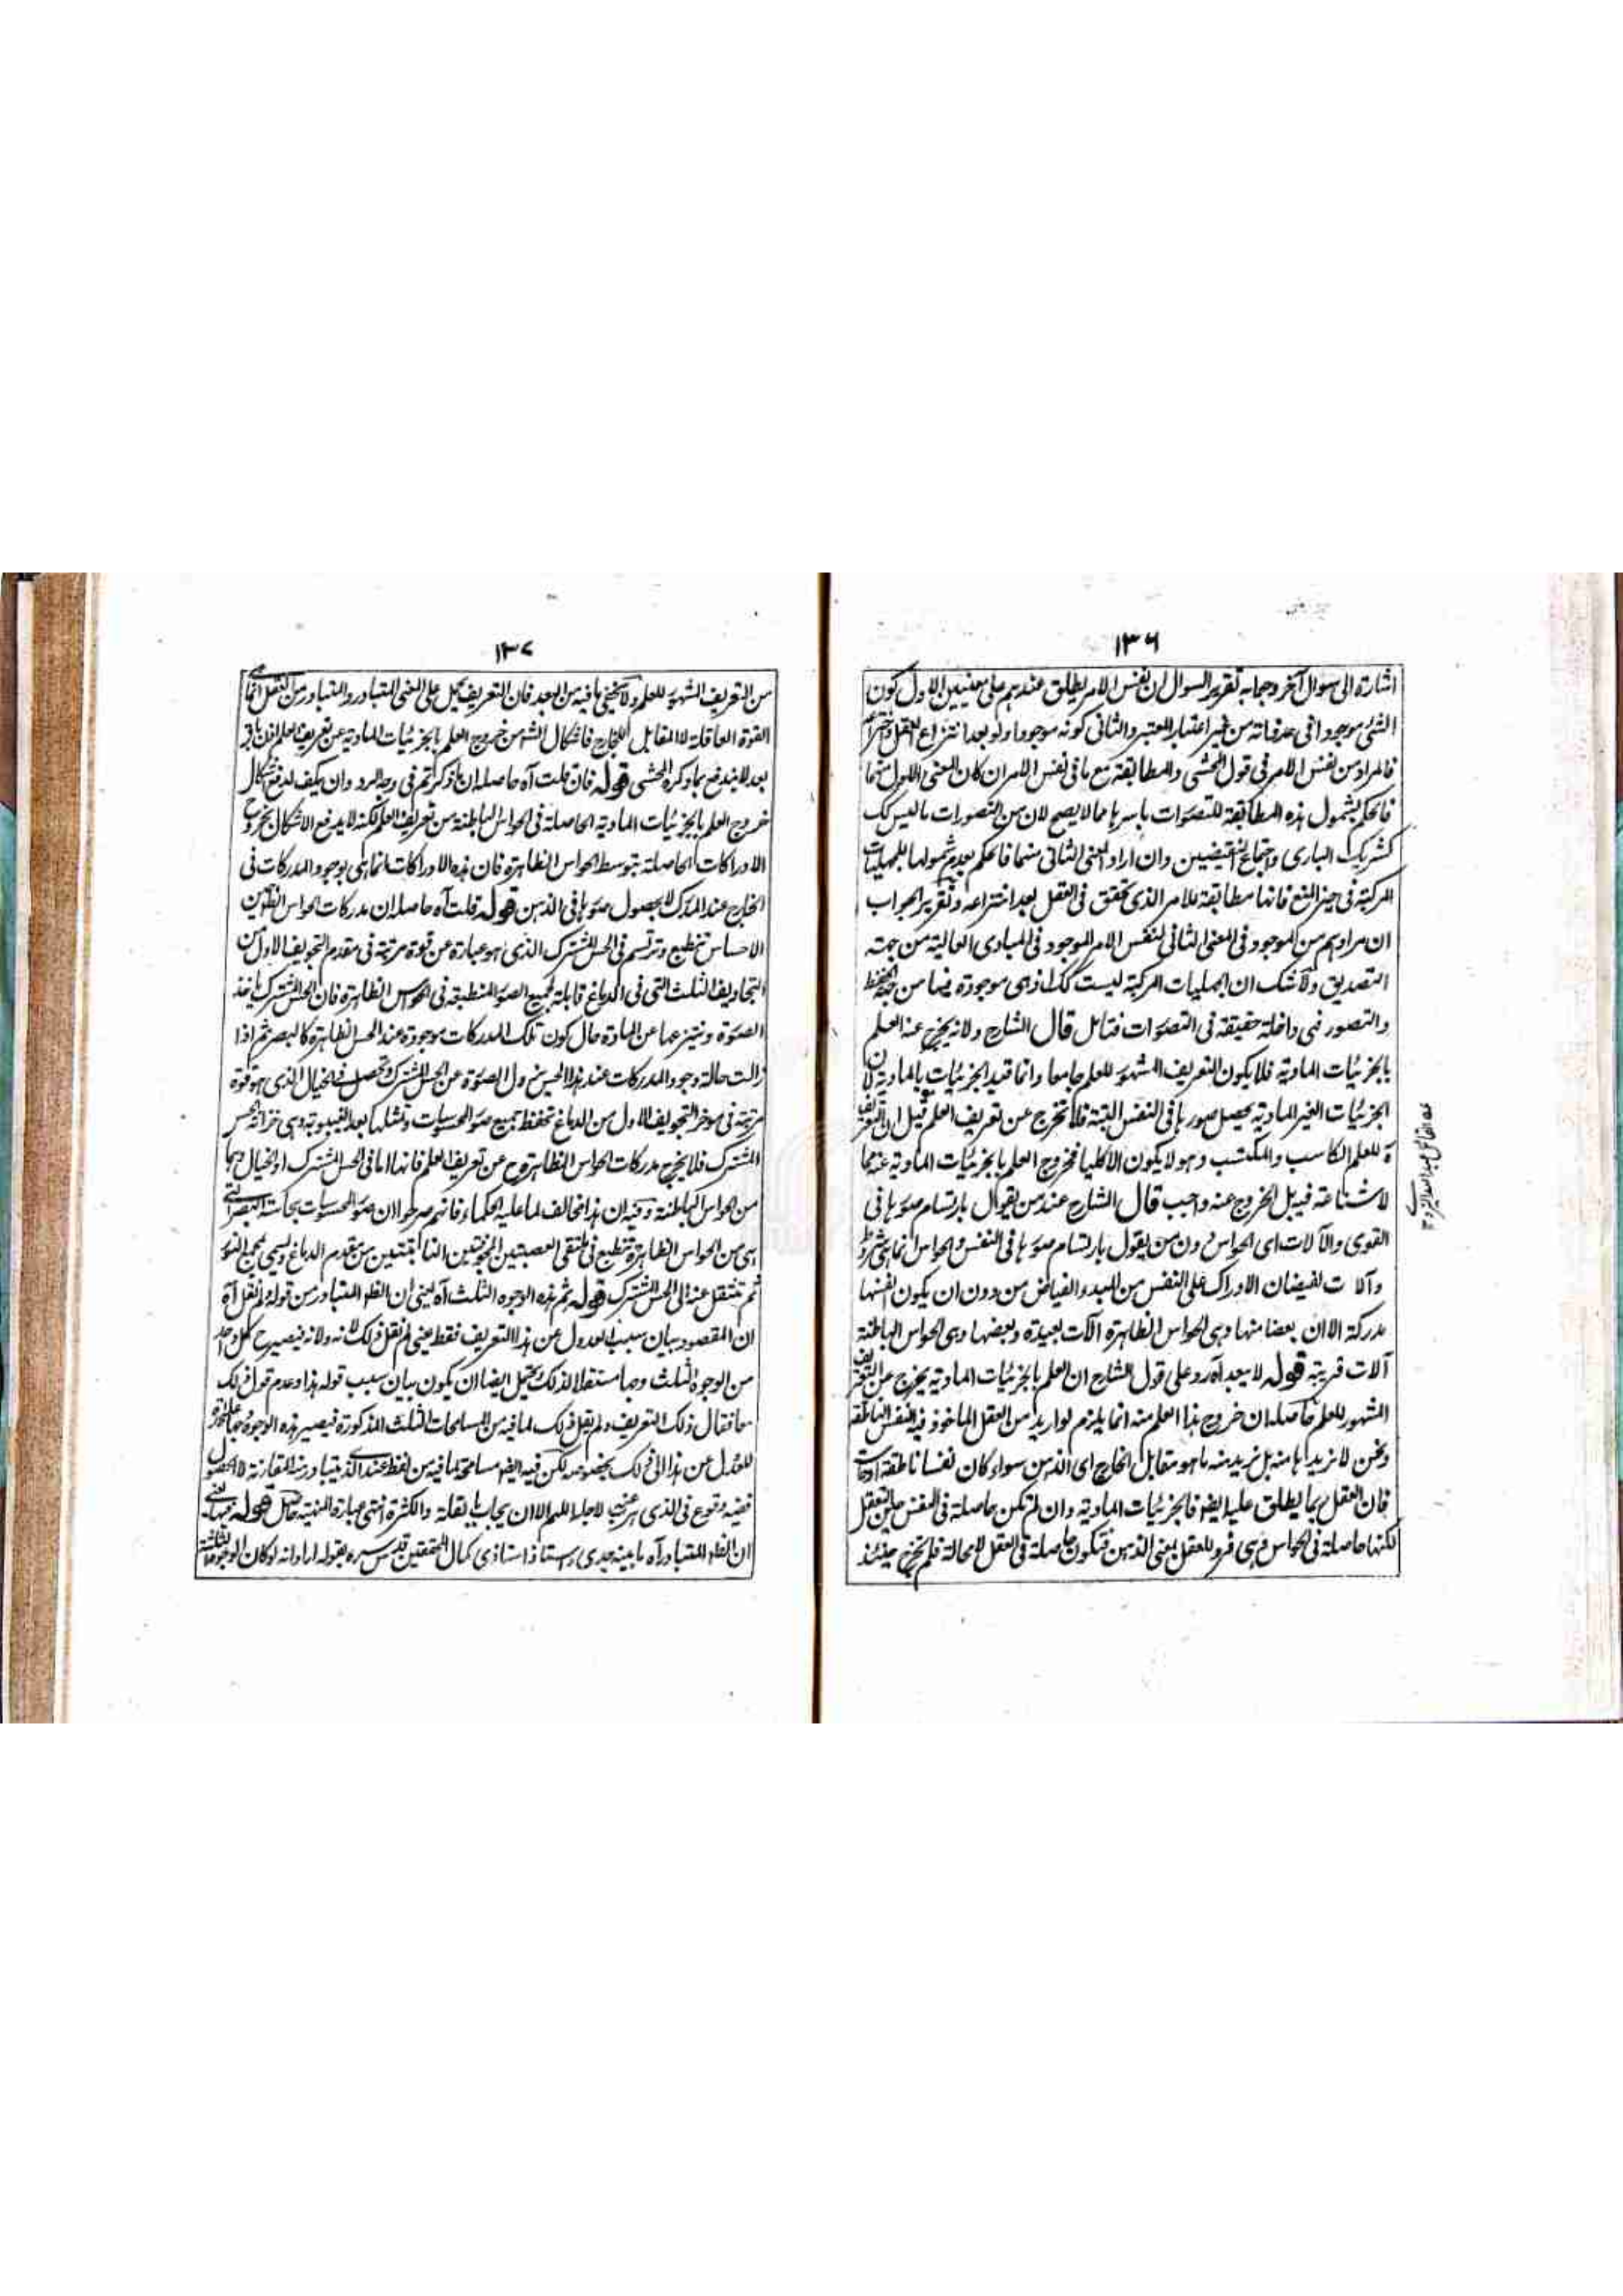 ۱۳۶
اشارة الى سوال آخر وجوابه تقرير السوال ان نفس الامر يطلق عندهم على معنيين الاول كون
الشئ موجودا فى حد ذاته من غير اعتبار المعتبر والثانى كونه موجودا ولو بعد انتزاع العقل واختراعه
فالمراد من نفس الامر فى قول المحشى والمطابقة مع ما فى نفس الامر ان كان المعنى الاول منهما
فالحكم بشمول هذه المطابقة للتصورات باسرها مما لا يصح لان من التصورات ما ليس كك
كشريك البارى واجتماع النقيضين وان اراد المعنى الثانى منهما فالحكم بعدم شمولها للجهليات
المركبة فى حيز المنع فانها مطابقة للامر الذى تحقق فى العقل بعد اختراعه وتقرير الجواب
ان مرادهم من الموجود فى المعنى الثانى لنفس الامر الموجود فى المبادى العالية من جهة
التصديق ولا شك ان الجهليات المركبة ليست كك اذ هى موجودة فيها من جهة الحفظ
والتصور فهى داخلة حقيقة فى التصورات فتامل قال الشارح ولانه يخرج عنه العلم
بالجزئيات المادية فلا يكون التعريف المشهور للعلم جامعا وانما قيد الجزئيات بالمادية لان
الجزئيات الغير المادية يحصل صورها فى النفس البتة فلا تخرج عن تعريف العلم قيل ان التعريف
للعلم الكاسب والمكتسب وهو لا يكون الا كليا فخروج العلم بالجزئيات المادية عنهما
لا شناعة فيه بل الخروج عنه واجب قال الشارح عند من يقول بارتسام صورها فى
القوى والآلات اى الحواس دون من يقول بارتسام صورها فى النفس والحواس انما هى شروط
وآلات لفيضان الادراك على النفس من المبدء الفياض من دون ان يكون انفسها
مدركة الا ان بعضا منها وهى الحواس الظاهرة آلات بعيدة وبعضها وهى الحواس الباطنة
آلات قريبة قوله لا يبعد آه رد على قول الشارح ان العلم بالجزئيات المادية يخرج عن التعريف
المشهور للعلم حاصله ان خروج هذا العلم منه انما يلزم لو اريد من العقل الماخوذ فيه النفس الناطقة
ونحن لا نريدها منه بل نريد منه ما هو مقابل الخارج اى الذهن سواء كان نفسا ناطقة او حاسة
فان العقل ربما يطلق عليه ايضا فالجزئيات المادية وان لم تكن حاصلة فى النفس حين التعقل
لكنها حاصلة فى الحواس وهى فرد للعقل بمعنى الذهن فتكون حاصلة فى العقل لا محالة فلم تخرج حينئذ
۱۳۷
من التعريف المشهور للعلم ولا يخفى ما فيه من البعد فان التعريف يحمل على المعنى المتبادر والمتبادر من العقل انما هى
القوة العاقلة لا المقابل للخارج فاشكال الشه من خروج العلم بالجزئيات المادية عن تعريف العلم اذن باق
بعد لا يندفع بما ذكره المحشى قوله فان قلت آه حاصله ان ما ذكرتم فى وجه الرد وان يكف لدفع اشكال
خروج العلم بالجزئيات المادية الحاصلة فى الحواس الباطنة من تعريف العلم لكنه لا يدفع الاشكال بخروج
الادراكات الحاصلة بتوسط الحواس الظاهرة فان هذه الادراكات انما هى بوجود المدركات فى
الخارج عند المدرك لا بحصول صورها فى الذهن قوله قلت آه حاصله ان مدركات الحواس الظاهرة حين
الاحساس تنطبع وترتسم فى الحس المشترك الذى هو عبارة عن قوة مرتبة فى مقدم التجويف الاول من
التجاويف الثلث التى فى الدماغ قابلة لجميع الصور المنطبعة فى الحواس الظاهرة فان الحس المشترك ياخذ
الصورة وينتزعها عن المادة حال كون تلك المدركات موجودة عند الحس الظاهرة كالبصر ثم اذا
زالت حالة وجود المدركات عند هذا الحس يزول الصورة عن الحس المشترك وتحصل فى الخيال الذى هو قوة
مرتبة فى موخر التجويف الاول من الدماغ تحفظ جميع صور المحسوسات وتمثلها بعد الغيبوبة وهى خزانة الحس
المشترك فلا يخرج مدركات الحواس الظاهرة ح عن تعريف العلم فانها اما فى الحس المشترك او الخيال وهما
من الحواس الباطنة وفيه ان هذا مخالف لما عليه الحكماء فانهم صرحوا ان صور المحسوسات بحاسة البصر التى
هى من الحواس الظاهرة تنطبع فى ملتقى العصبتين المجوفتين النابتتين من مقدم الدماغ ويسمى مجمع النور
ثم تنتقل عنه الى الحس المشترك قوله ثم هذه الوجوه الثلث آه يعنى ان الظاهر المتبادر من قوله لم نقل آه
ان المقصود بيان سبب العدول عن هذا التعريف فقط يعنى لم نقل ذلك لانه ولانه فيصير ح كل واحد
من الوجوه الثلث وجها مستقلا لذلك ويحتمل ايضا ان يكون بيان سبب قوله هذا وعدم قول ذلك
معا فقال ذلك التعريف ولم يقل ذلك لما فيه من المسامحات الثلث المذكورة فيصير هذه الوجوه وجها على حدة
للعدل عن هذا الى ذلك بخصوصه لكن فيه ايضا مسامحة لما فيه من لفظ عند الذى يتبادر منه المقارنة لا الحصول
ففيه وقوع فى الذى هرعنه لاجله اللهم الا ان يجاب بالقلة والكثرة انتهى عبارة المنهية
ان الظاهر المتبادر آه ما بينه جدى واستاذ استاذى كمال المحققين قدس سره بقوله اراد انه لو كان الوجوه الثلثة